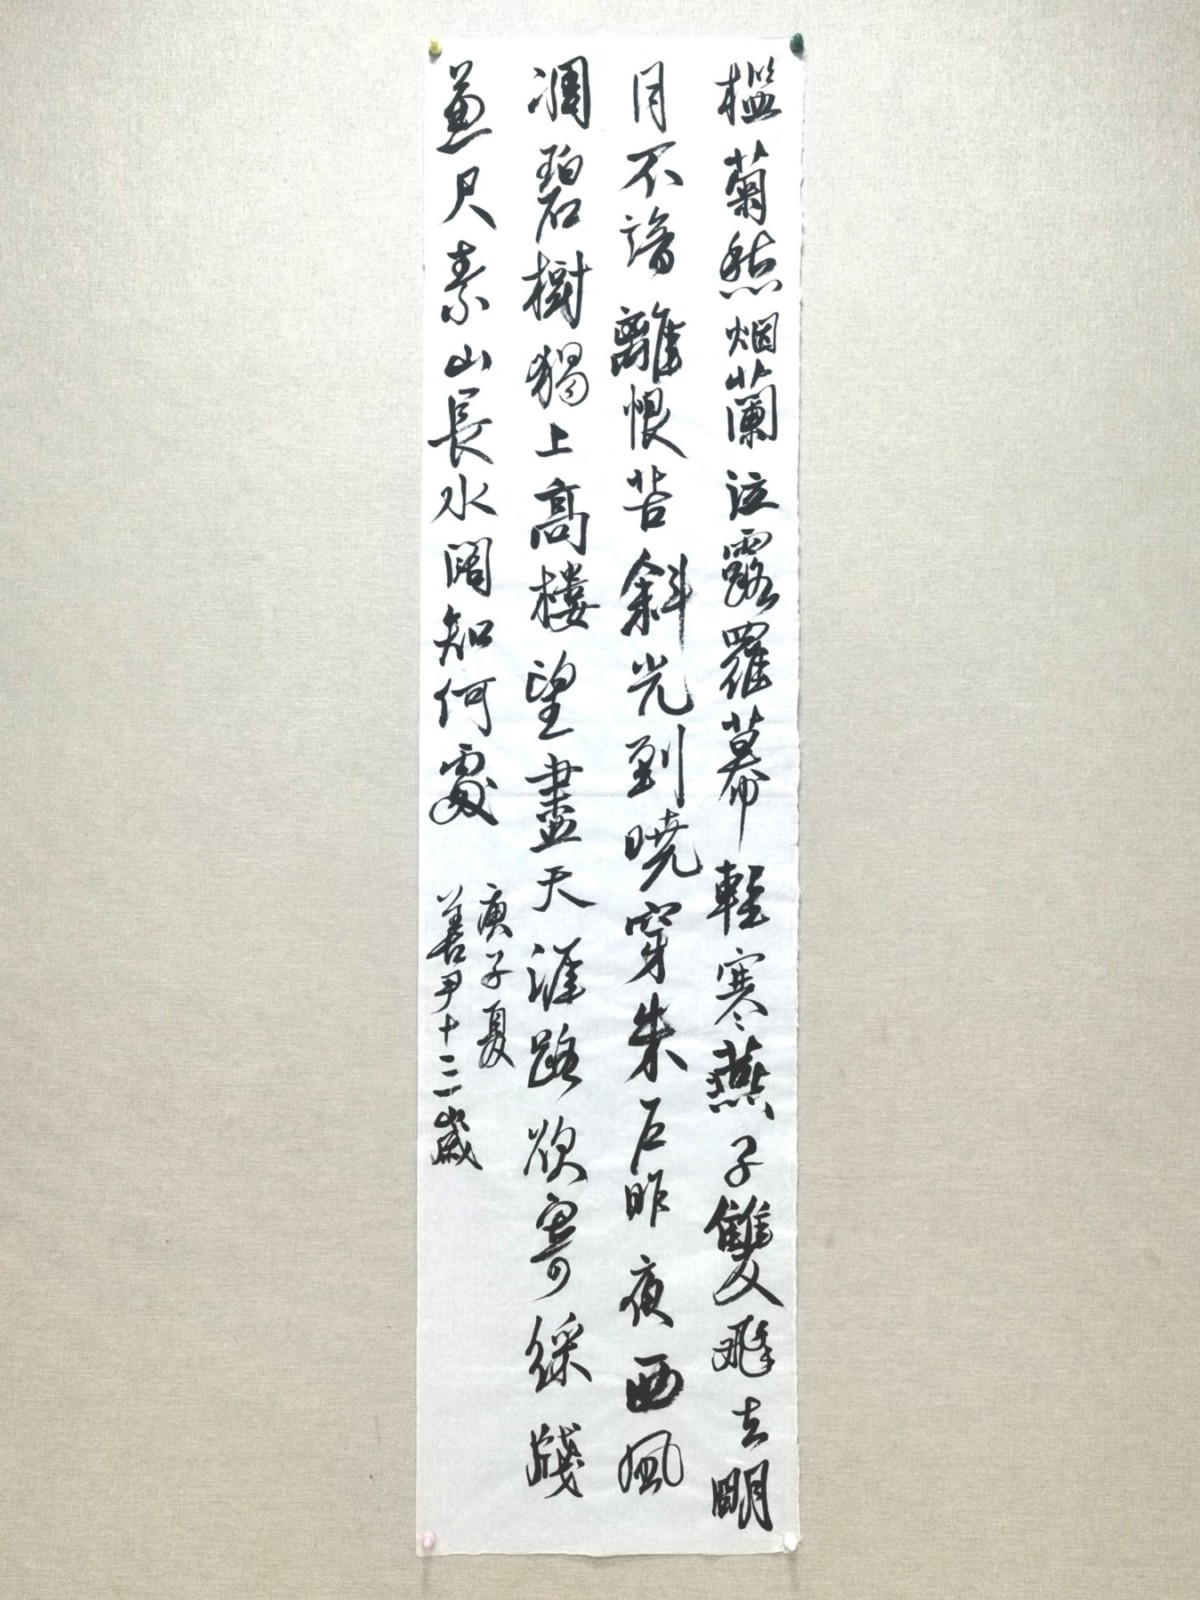 檻菊愁烟蘭泣露羅幕輕寒燕子雙飛去明
月不諳離恨苦斜光到曉穿朱戶昨夜西風
凋碧樹獨上高樓望盡天涯路欲寄綵牋
兼尺素山長水闊知何處
庚子夏
善尹十二歲